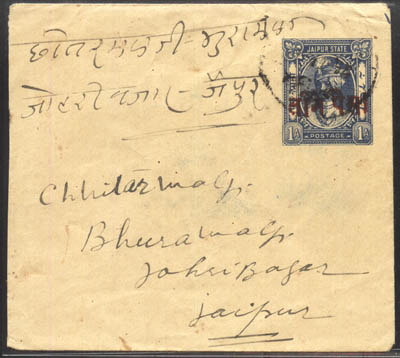 छीतरमलजी-भुरामल
जोहरी बजार-जैपुर
JAIPUR STATE
1A POSTAGE 1A
Chhitarmalji
Bhuramalji
Johri Bazar
Jaipur